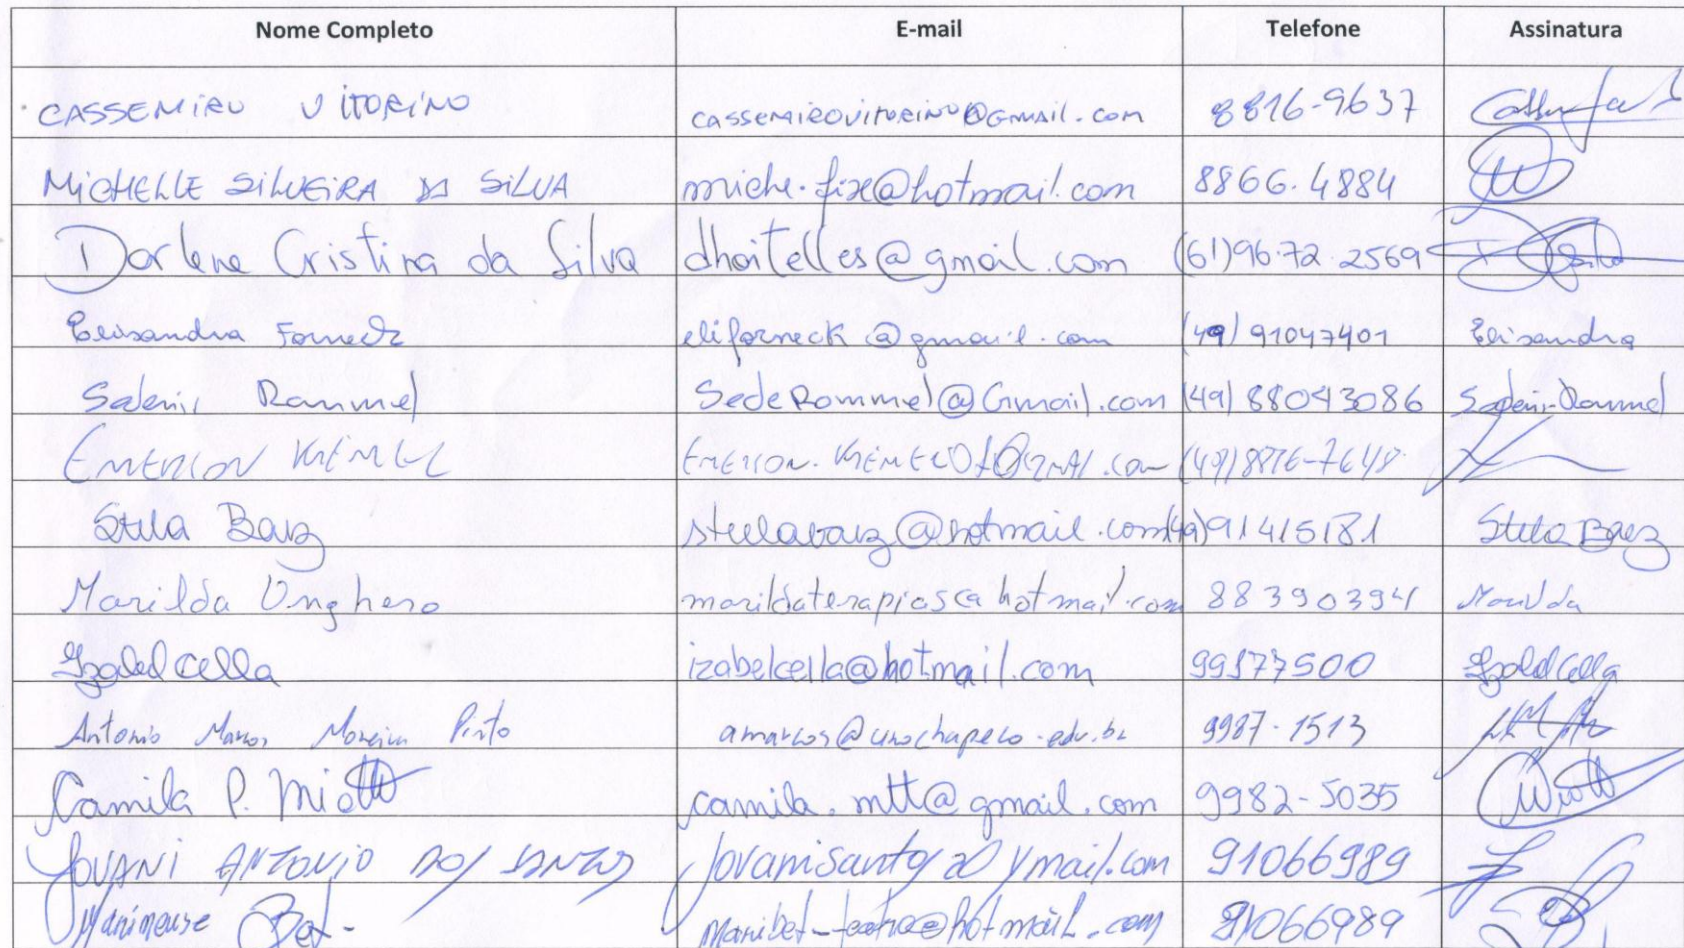 Nome Completo E-mail Telefone Assinatura
CASSEMIRO VITORINO CASSEMIROVITORINO@GMAIL.COM 8816-9637
MICHELLE SILVEIRA DA SILVA miche.fixe@hotmail.com 8866.4884
Darlene Cristina da Silva dhaitelles@gmail.com (61)96.72.2569
Elisandra Forneck eliforneck@gmail.com (49) 91047401 Elisandra
Sadenir Rommel SedeRommel@Gmail.com (49) 88043086 Sadenir Rommel
EMERSON (49)8816-7648
Stela Barz stelabarz@hotmail.com (49)91415181 Stela Barz
Marilda Unghero marildaterapias ca hotmail.com 88390394 Marilda
Izabel Cella izabelcella@hotmail.com 99577500 Izabel Cella
Antonio Marcos Moreira Pinto amarcos@unochapeco.edu.br 9987-1513
Camila P. Miotto camila.mtt@gmail.com 9982-5035 Miotto
JOVANI ANTONIO DOS SANTOS Jovanisantos@ymail.com 91066989
Marineuse Bet- Maribet-teatro@hotmail.com 91066989